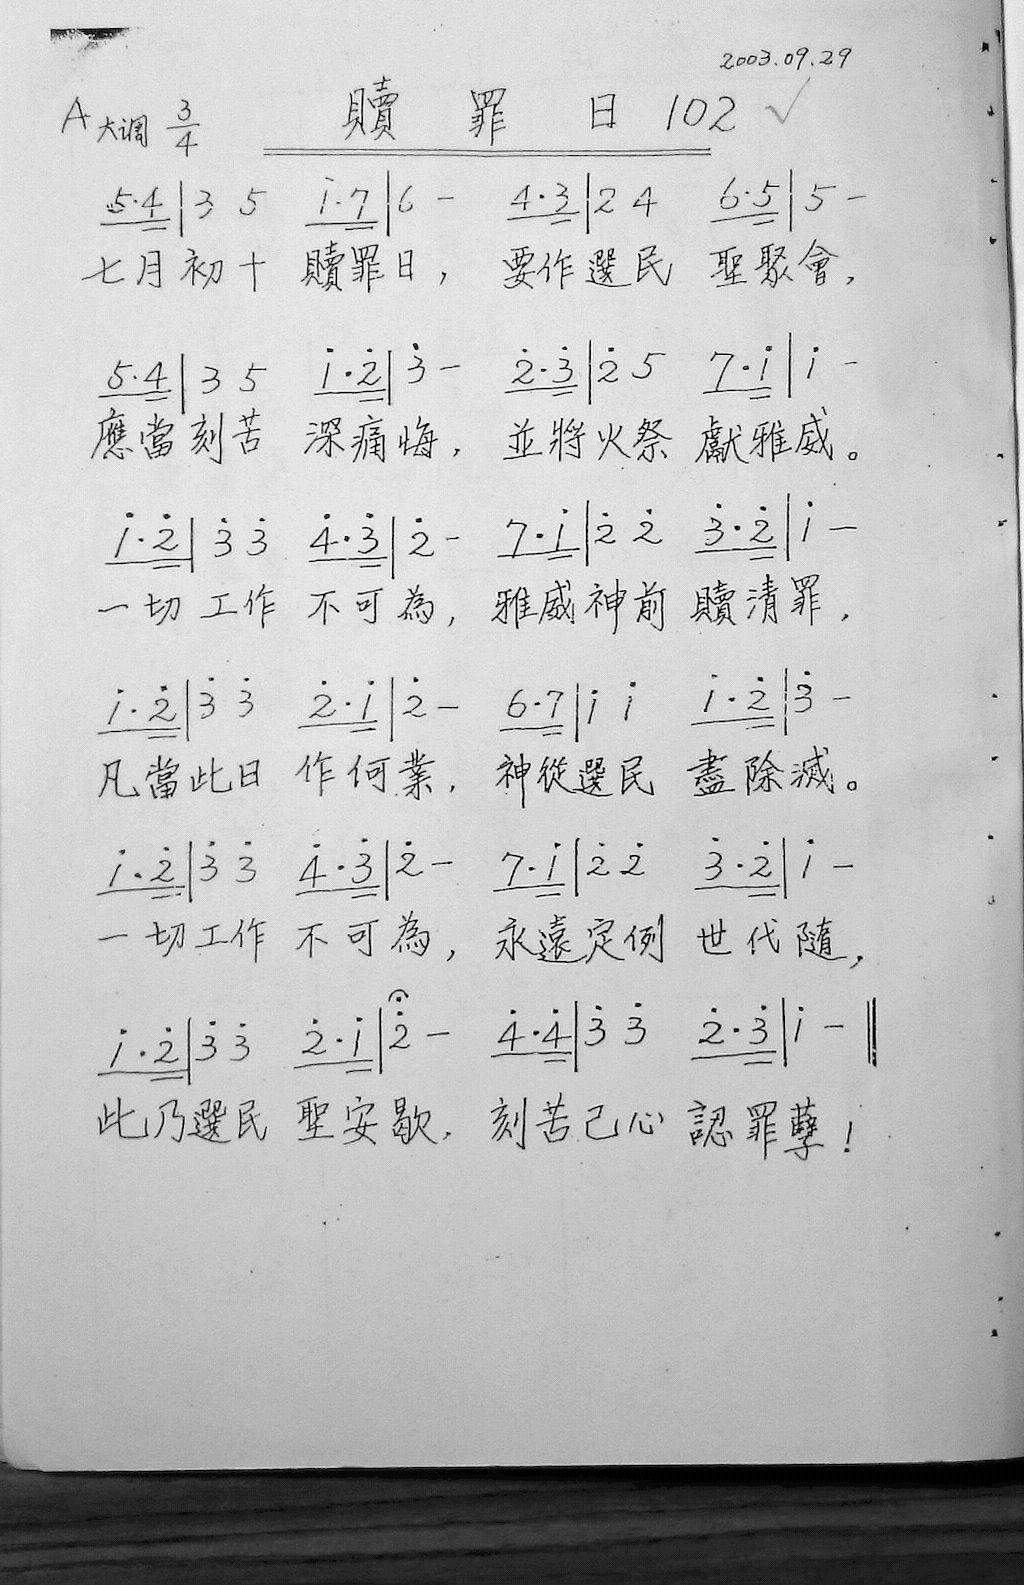 2003.09.29
A大调 3/4 贖罪日 102 ✓
5·4|3 5 i·7|6 - 4·3|2 4 6·5|5 -
七月初十 贖罪日, 要作選民 聖聚會,
5·4|3 5 i·2̇|3̇ - 2̇·3̇|2̇ 5 7·i|i -
應當刻苦 深痛悔, 並將火祭 獻雅威。
i·2̇|3̇ 3̇ 4̇·3̇|2̇ - 7·i|2̇ 2̇ 3̇·2̇|i -
一切工作 不可為, 雅威神前 贖清罪,
i·2̇|3̇ 3̇ 2̇·i|2̇ - 6·7|i i i·2̇|3̇ -
凡當此日 作何業, 神從選民 盡除滅。
i·2̇|3̇ 3̇ 4̇·3̇|2̇ - 7·i|2̇ 2̇ 3̇·2̇|i -
一切工作 不可為, 永遠定例 世代隨,
i·2̇|3̇ 3̇ 2̇·i|2̇ - 4̇·4̇|3̇ 3̇ 2̇·3̇|i - ‖
此乃選民 聖安歇, 刻苦己心 認罪孽!